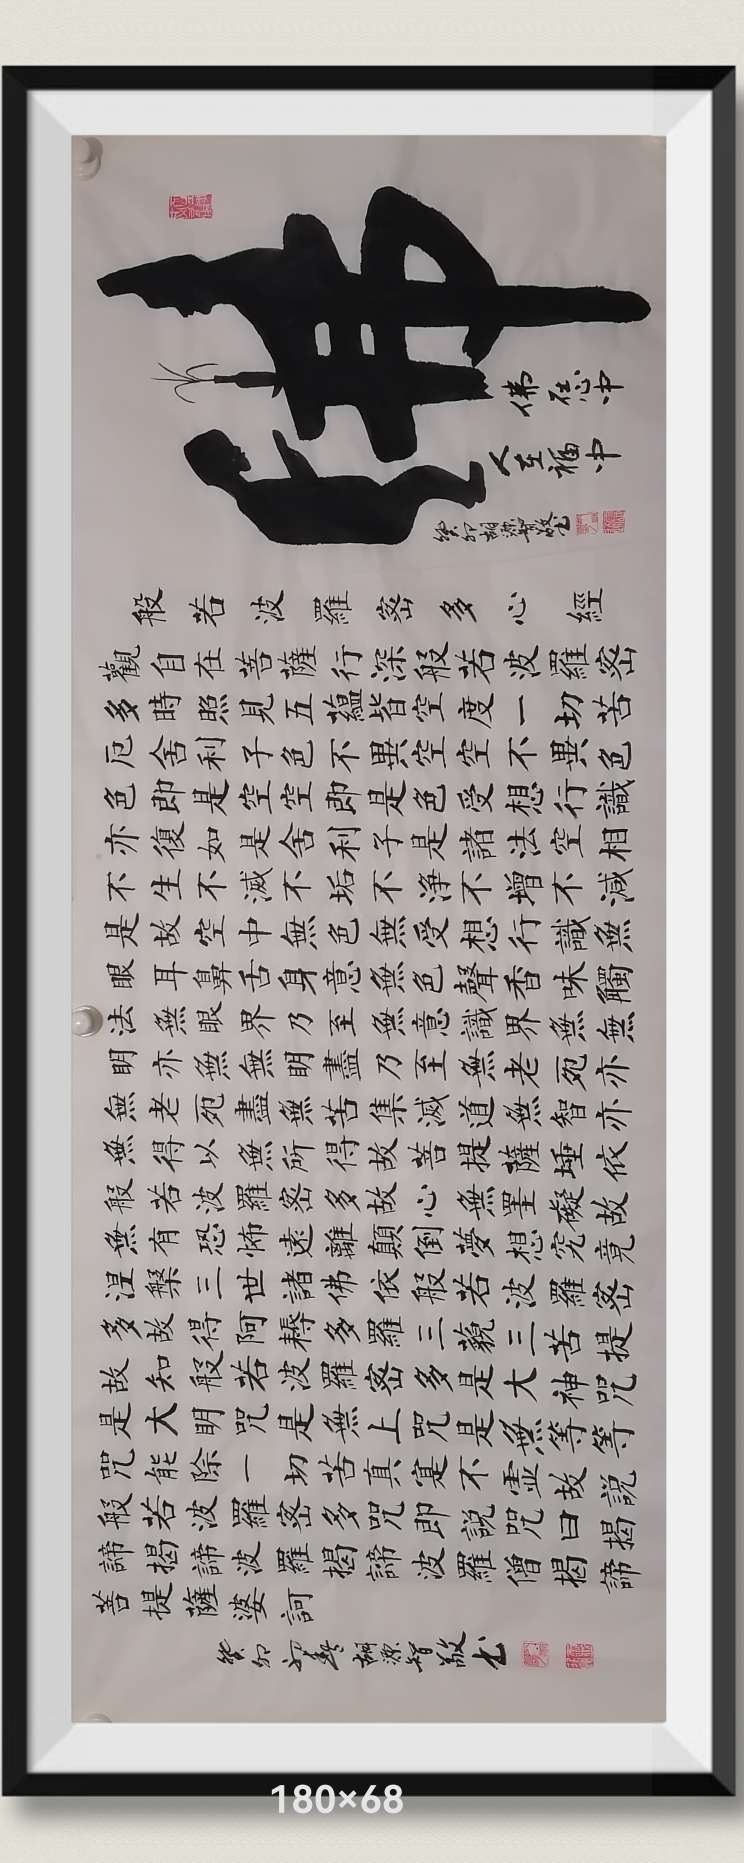 佛
佛在心中
人在福中
癸卯胡源智敬書
般若波羅密多心經
觀自在菩薩行深般若波羅密
多時照見五蘊皆空度一切苦
厄舍利子色不異空空不異色
色即是空空即是色受想行識
亦復如是舍利子是諸法空相
不生不滅不垢不淨不增不減
是故空中無色無受想行識無
眼耳鼻舌身意無色聲香味觸
法無眼界乃至無意識界無無
明亦無無明盡乃至無老死亦
無老死盡無苦集滅道無智亦
無得以無所得故菩提薩埵依
般若波羅密多故心無罣礙故
無有恐怖遠離顛倒夢想究竟
涅槃三世諸佛依般若波羅密
多故得阿耨多羅三藐三菩提
故知般若波羅密多是大神咒
是大明咒是無上咒是無等等
咒能除一切苦真實不虛故說
般若波羅密多咒即說咒曰揭
諦揭諦波羅揭諦波羅僧揭諦
菩提薩婆訶
癸卯初春胡源智敬書
180×68